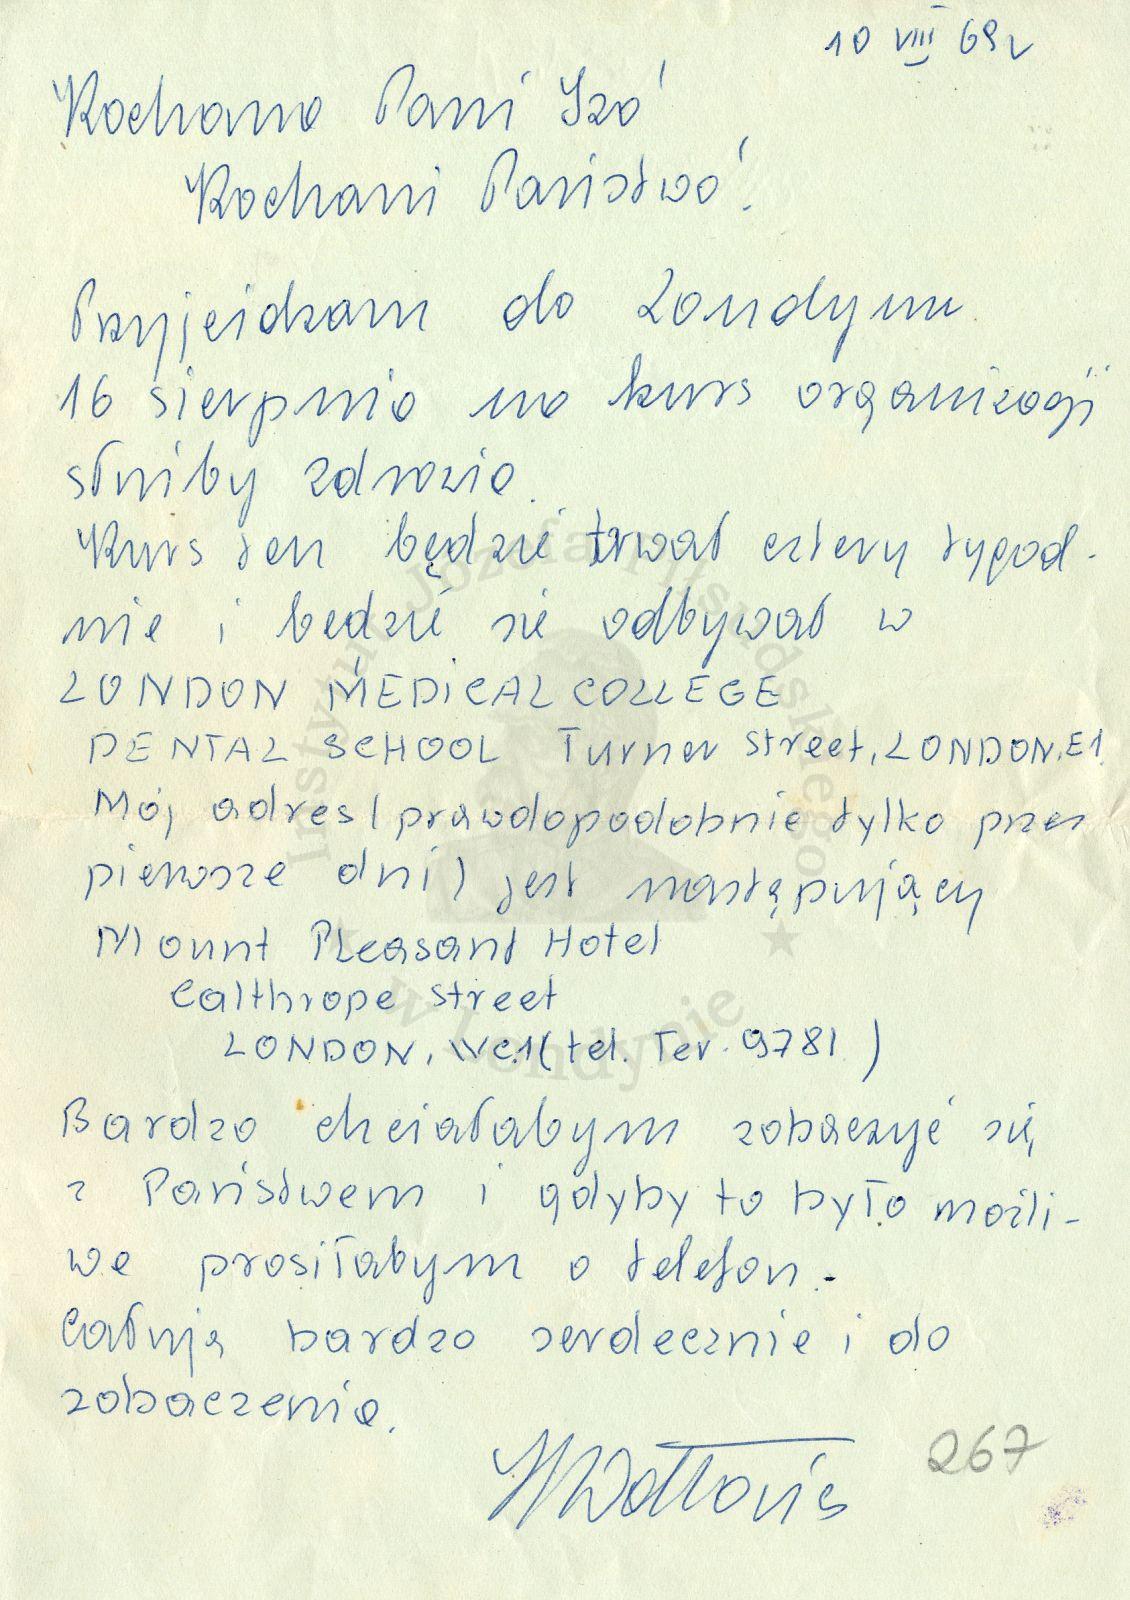 10 VIII 69 r
Kochana Pani Izo!
Kochani Państwo!
Przyjeżdżam do Londynu
16 sierpnia na kurs organizacji
służby zdrowia.
Kurs ten będzie trwał cztery tygod-
nie i będzie się odbywał w
LONDON MEDICAL COLLEGE
DENTAL SCHOOL Turner Street, LONDON, E1.
Mój adres (prawdopodobnie tylko przez
pierwsze dni) jest następujący
Mount Pleasant Hotel
Calthrope street
LONDON, WC.1 (tel. Ter. 9781)
Bardzo chciałabym zobaczyć się
z Państwem i gdyby to było możli-
we prosiłabym o telefon.-
Całuję bardzo serdecznie i do
zobaczenia.
267
Instytut Józefa Piłsudskiego
w Londynie